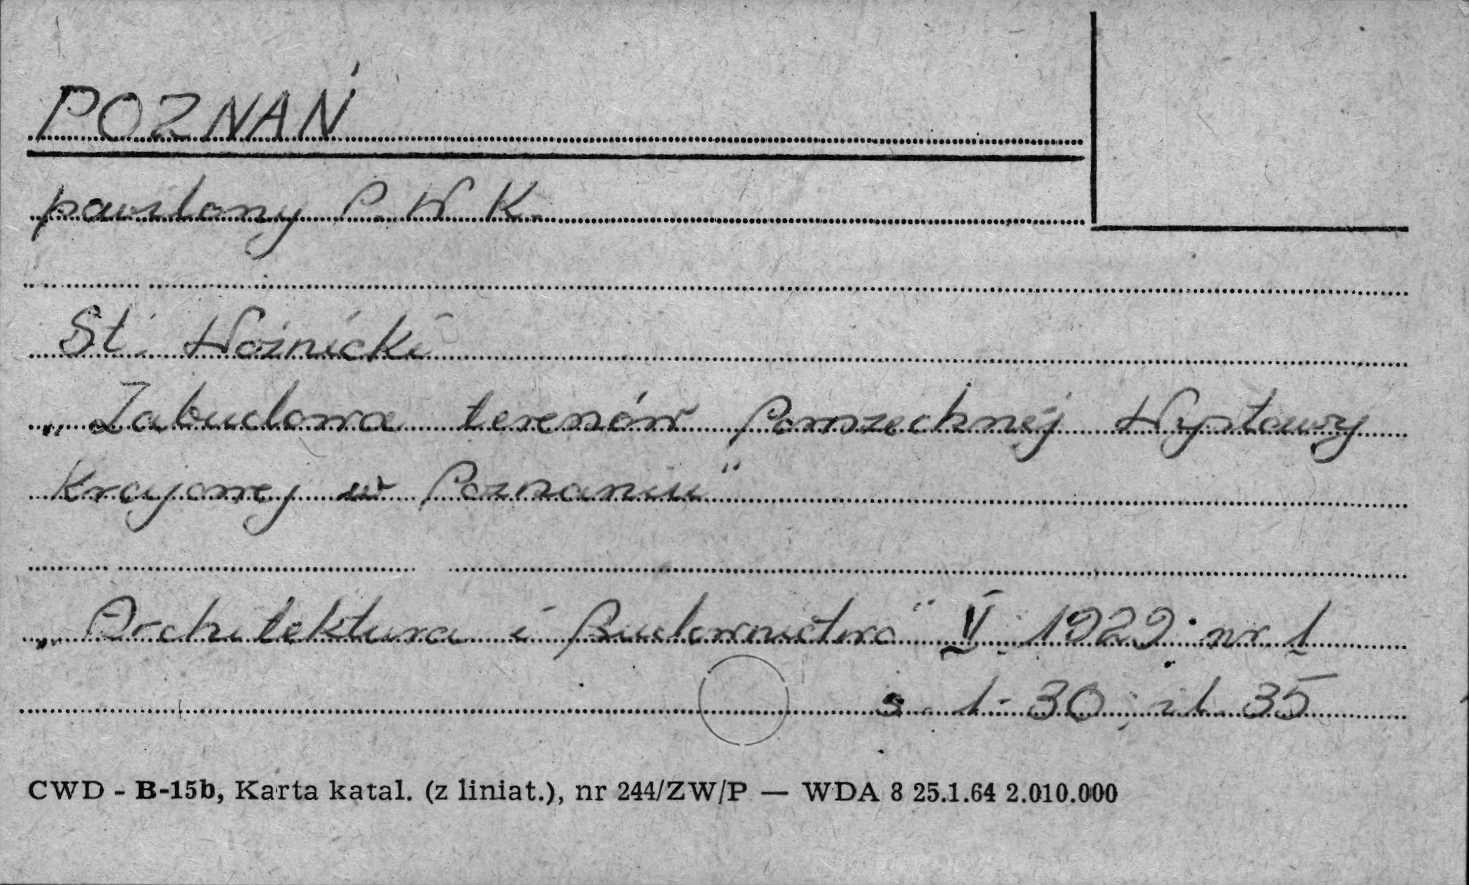 POZNAŃ
pawilony P. W K.
St. Woźnicki
„Zabudowa terenów Powszechnej Wystawy
Krajowej w Poznaniu"
„Architektura i Budownictwo" V 1929 nr. 1
s. 1-30, il. 35
CWD - B-15b, Karta katal. (z liniat.), nr 244/ZW/P — WDA 8 25.1.64 2.010.000